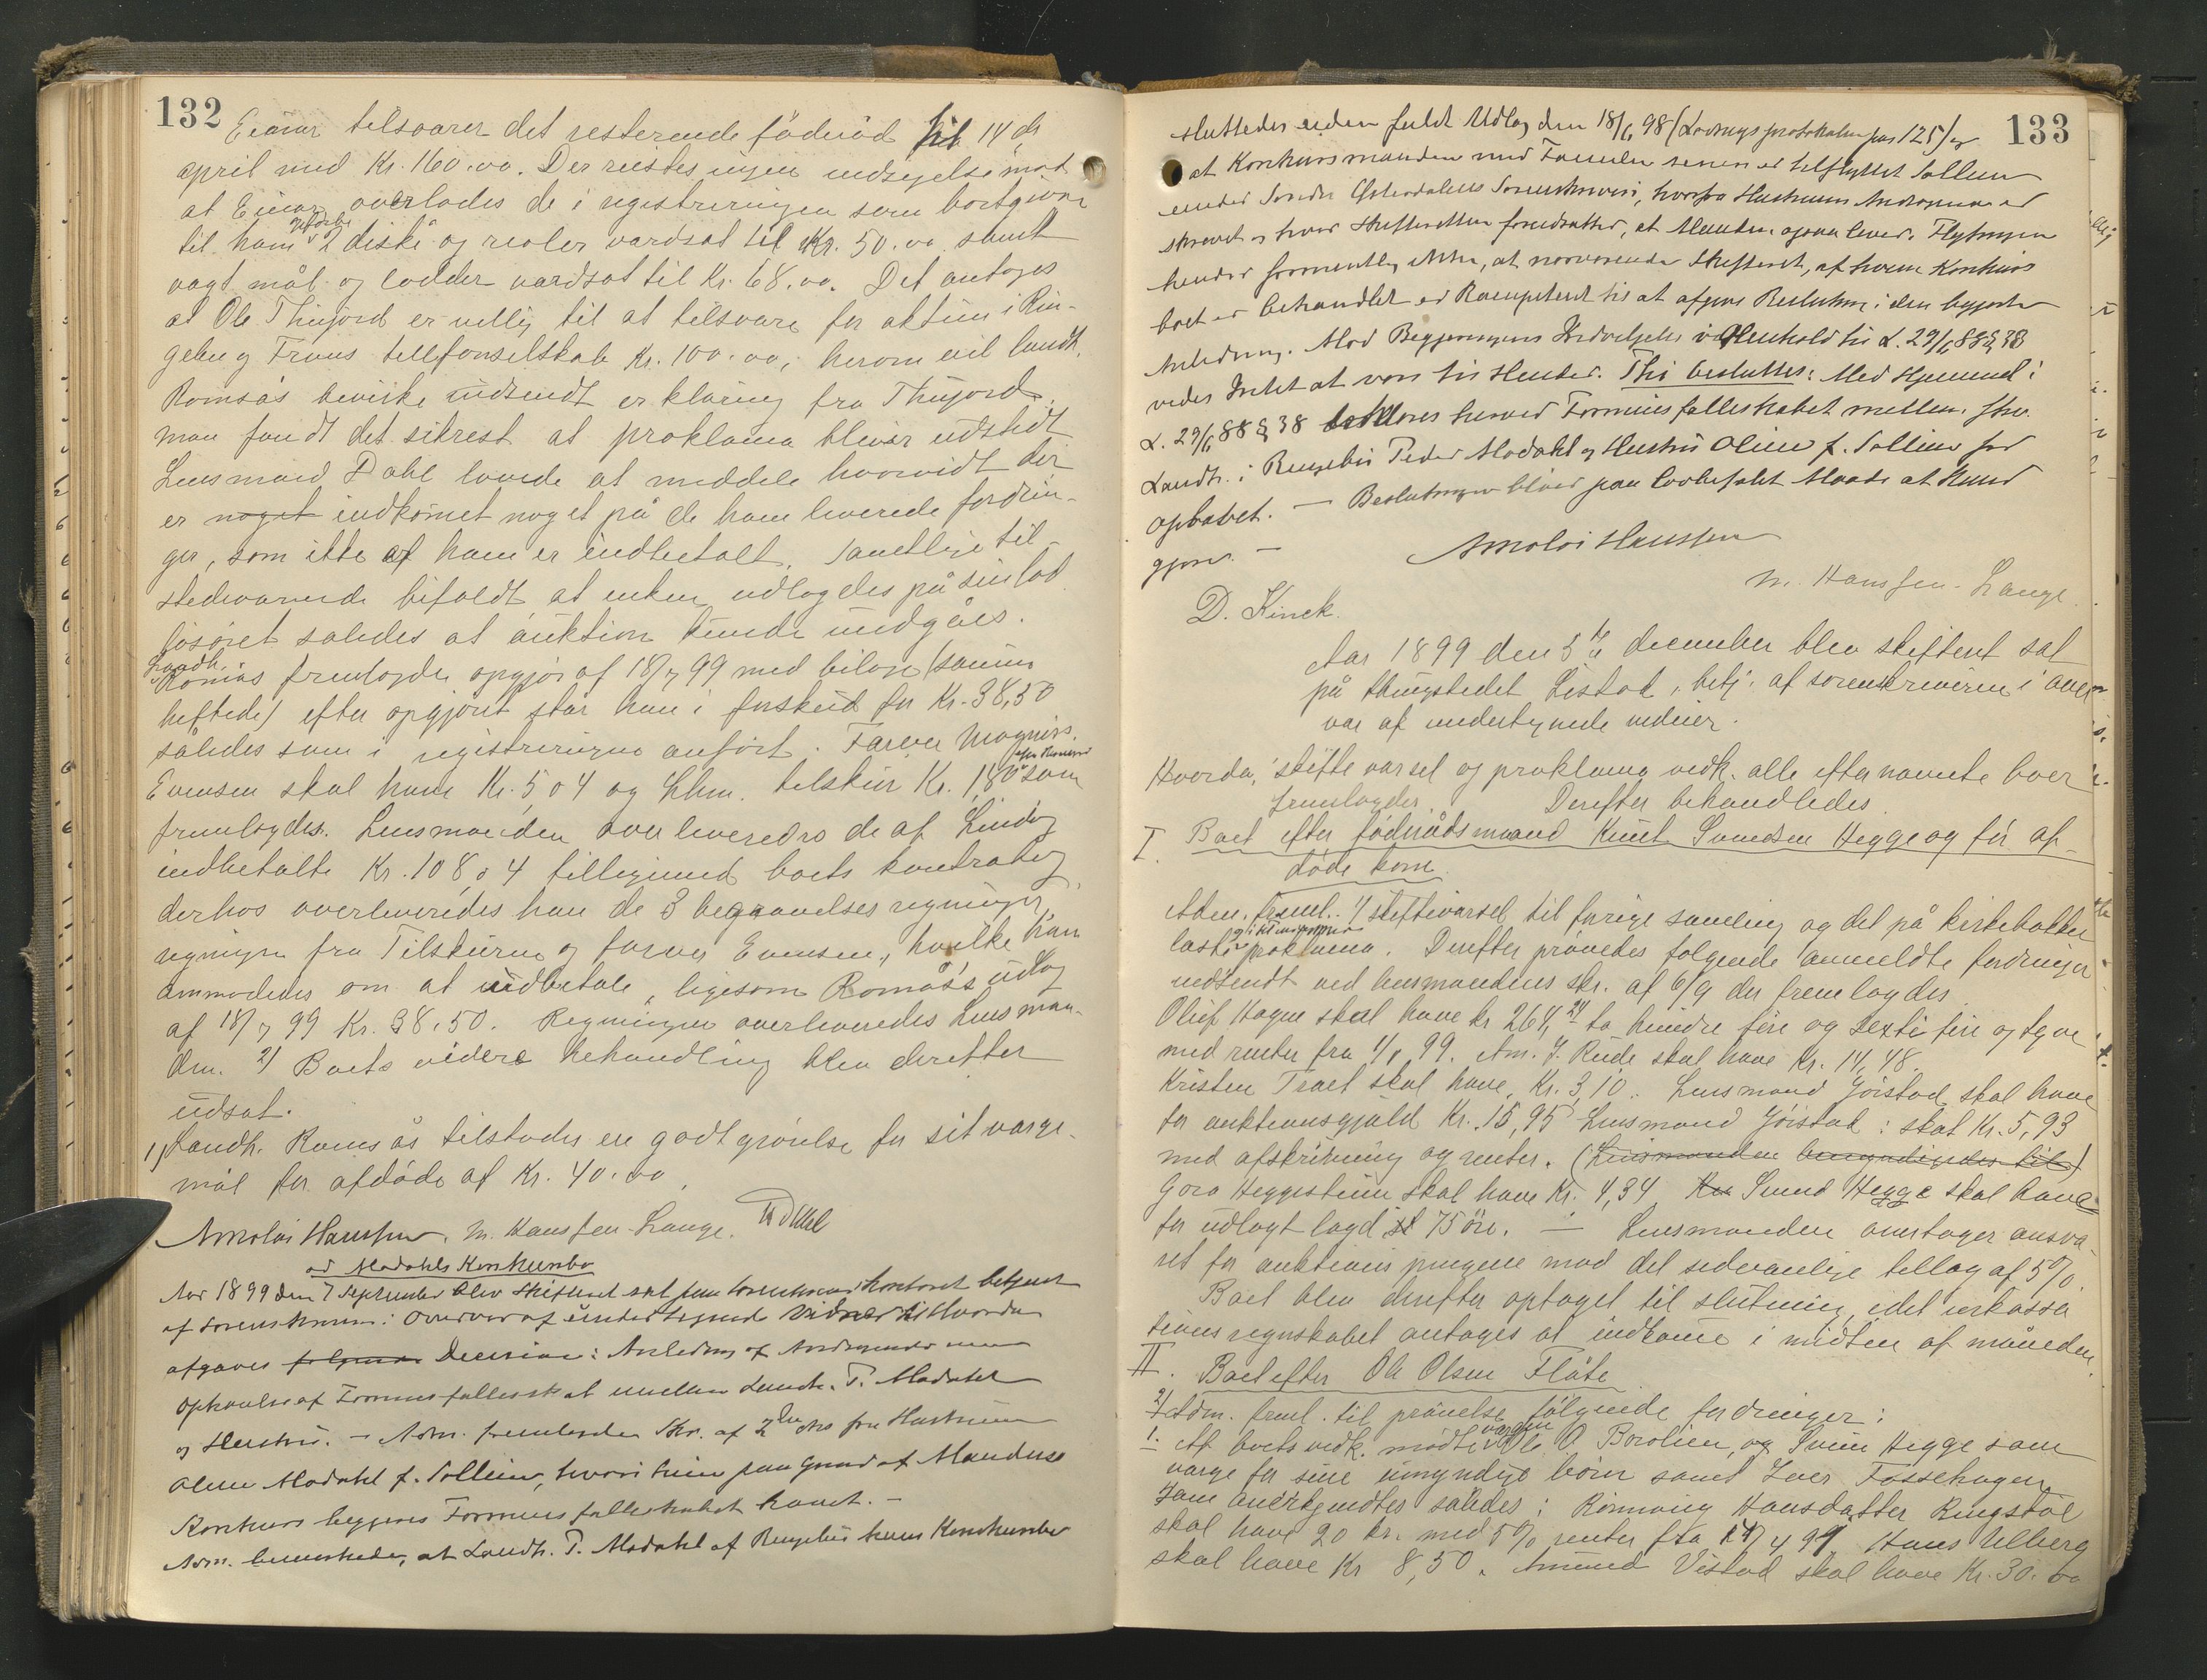 132
Einar tilsvarer det resterende föderåd til 14de
april med Kr. 160.00. Der reistes ingen indsigelse mod
at Einar overlodes de i registreringen som bortgivne
til ham 2 diske og reoler værdsat til Kr. 50.00 samt
vægt mål og lodder værdsat til Kr. 68.00. Det antoges
at Ole Thujord er villig til at tilsvare for aktien i Rin-
gebu og Frons telefonselskab Kr. 100.00, herom vil landh.
Romsås bevirke indsendt erklæring fra Thujord.
man fandt det sikrest at proklama bliver udstedt
Lensmand Dahl lovede at meddele hvorvidt der
er noget indkomet noget på de ham leverede fordrin-
ger, som ikke af ham er indbetalt. Samtlige til-
stedeværende bifaldt at enken udlagdes på sin lod
løsøret således at auktion kunde undgåes.
Landh. Romås fremlagde opgjør af 18/7 99 med bilage (samm
heftede) efter opgjöret står han i forskud for Kr. 38,50
således som i registreringen anført. Farver Magnus
Evensen skal have Kr. 5,04 og Chr. Tilskür Kr. 1,80 som
fremlagdes. Lensmanden overleveredes de af Lindvig
indbetalte Kr. 108,04 tilligemed boets kontrabog,
derhos overleveredes han de 3 begravelsesregninger,
regningen fra Tilskuren og farver Evensen, hvilke han
ammodedes om at udbetale, ligesom Romås's udlæg
af 18/7 99 Kr. 38.50. Regningen overleveredes Lensman-
den. 2) Boets videre behandling blev derefter
udsat.
1) Landh. Romsås tilstodes en godtgjörelse for sit værge-
mål for afdøde af Kr. 40.00
Nikolai Hanssen. M. Hanssen-Lange. TDahl
ad Modahls Konkursbo
Aar 1899 den 7 September blev Skifteret sat paa Sorenskriverkontoret betjent
af Sorenskriveren i Overvær af undertegnede Vidner. Hvorda
afgaves følgende Decision: Anledning af Andragende om
Ophævelse af Formuesfællesskab mellem Landh. P. Modahl
og Hustru. – Adm. fremlagde Skr. af 2den ds fra Hustruen
Oline Modahl f. Sollien, hvori hun paa Grund af Mandens
Konkurs begjærer Formuesfællesskabet hævet. –
Adm. bemærkede, at Landh. P. Modahl af Ringebus hans Konkursbo
133
sluttedes uden fuldt Udlæg den 18/6 98 (Lovdagsprotokollen pag 125) og
at Konkursmanden med Familie senere er tilflyttet Sollien
under Søndre Østerdalens Sorenskriveri, hvorfra Hustruens Andragende er
skrevet og hvor Skifteretten forudsætter, at Manden ogsaa lever. Flytningen
hindrer formentlig ikke, at nærværende Skifteret, af hvem Konkurs
boet er behandlet er kompetent til at afgive Beslutning i den begjærte
Anledning. Mod Begjæringens Indvilgelse i Henhold til L. 29/6 88 § 38
vides Intet at være til Hinder. Thi besluttes: Med Hjemmel i
L. 29/6 88 § 38 erklæres herved Formuesfællesskabet mellem fhv.
Landh. i Ringebu Peder Modahl og Hustru Oline f. Sollien for
ophævet. – Beslutningen bliver paa lovbefalet Maade at kund
gjøre. –
Nikolai Hanssen
M. Hanssen-Lange.
D. Kinck.
Aar 1899 den 5te december blev skifteret sat
på thingstedet Listad, betj. af sorenskriveren i over
vær af undertegnede vidner.
Hvorda, skifte varsel og proklama vedk. alle efternævnte boer
fremlagdes. Derefter behandledes
I. Boet efter födrådsmand Knut Svendsen Hegge og för af-
døde kone.
Adm. freml. 1 skiftevarsel til forige samling og det på kirkebakken
læste proklama. Derefter prøvedes følgende anmeldte fordringer
indsendt ved lensmandens skr. af 6/9 der fremlagdes
Oluf Hagen skal have kr 264,24 to hundre fire og sexti fire og tyve
med renter fra 1/1 99. Am. J. Rude skal have Kr. 14,48.
Kristen Traet skal have Kr. 3,10. Lensmand Jöistad skal have
for auktionsgjæld Kr. 15,95 Lensmand Jöistad: skat Kr. 5,93
med afskrivning og renter. (Lensmanden bemyndigedes til)
Goro Heggestuen skal have Kr. 4,34 Svend Hegge skal have
for udlagt lagd 75 öre. – Lensmanden overtager ansva-
ret for auktionspengene mod det sedvanlige tillæg af 5%.
Boet blev derefter optaget til slutning, idet inkassa
tionsregnskabet antages at indkomme i midten af måneden.
II. Boet efter Ole Olsen Fløte
2) Adm. freml. til prøvelse følgende fordringer:
1. At boets vedk. mødte værgen Ole O. Borolien, og Svein Hegge som
værge for sine umyndige börn samt Iver Fossehagen
Som anerkjendtes således: Rönnaug Hansdatter Ringstöl
skal have 20 kr. med 5% renter fra 14/4 99 Hans Ulberg
skal have Kr 8,50. Amund Vistad skal have Kr. 30.00